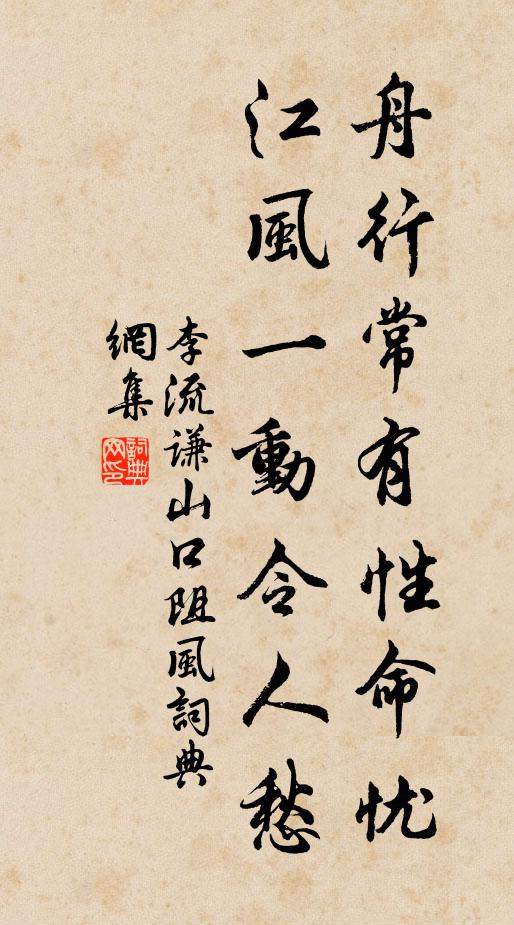 舟行常有性命忧
江風一動令人愁
李流谦山口阻風詞典
網集
詞典网印